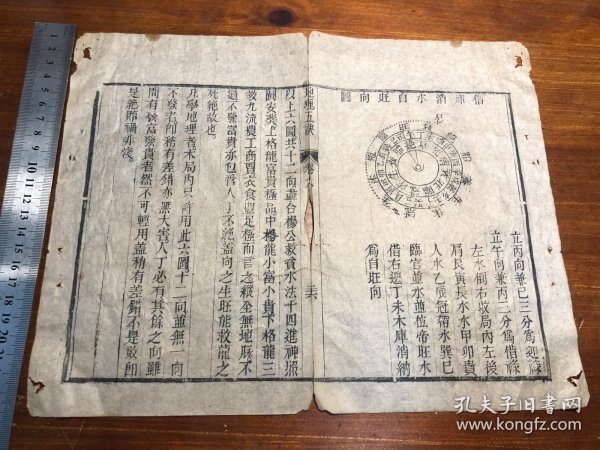 借庫消水自旺向圖
立丙向兼巳三分爲迎祿
立午向兼丙三分爲借祿
左水倒右故局内左後
肩艮寅長水水甲卯貴
人水乙辰冠帶水巽巳
臨官並水並位帝旺水
借右邊丁未木庫消納
爲自旺向
地理五訣
卷六
以上六圖共十二向盡合楊公救貧水法十四進神照
圖安塟上格龍富貴極品中格龍小富小貴下格龍三
教九流農工商賈衣食豐足極而言之縱全無地脉不
過不發富貴亦包管人丁不絶蓋向之生旺能救龍之
死絶故也
凡學地理者木局内只許用此六圖十二向並無一向
不發老師稍有差錯亦無大害人丁必有其餘之向雖
間有發富發貴者然不可輕用蓋稍有差錯不是敗卽
是絶貽禍非淺
孔夫子旧书网
www.kongfz.com